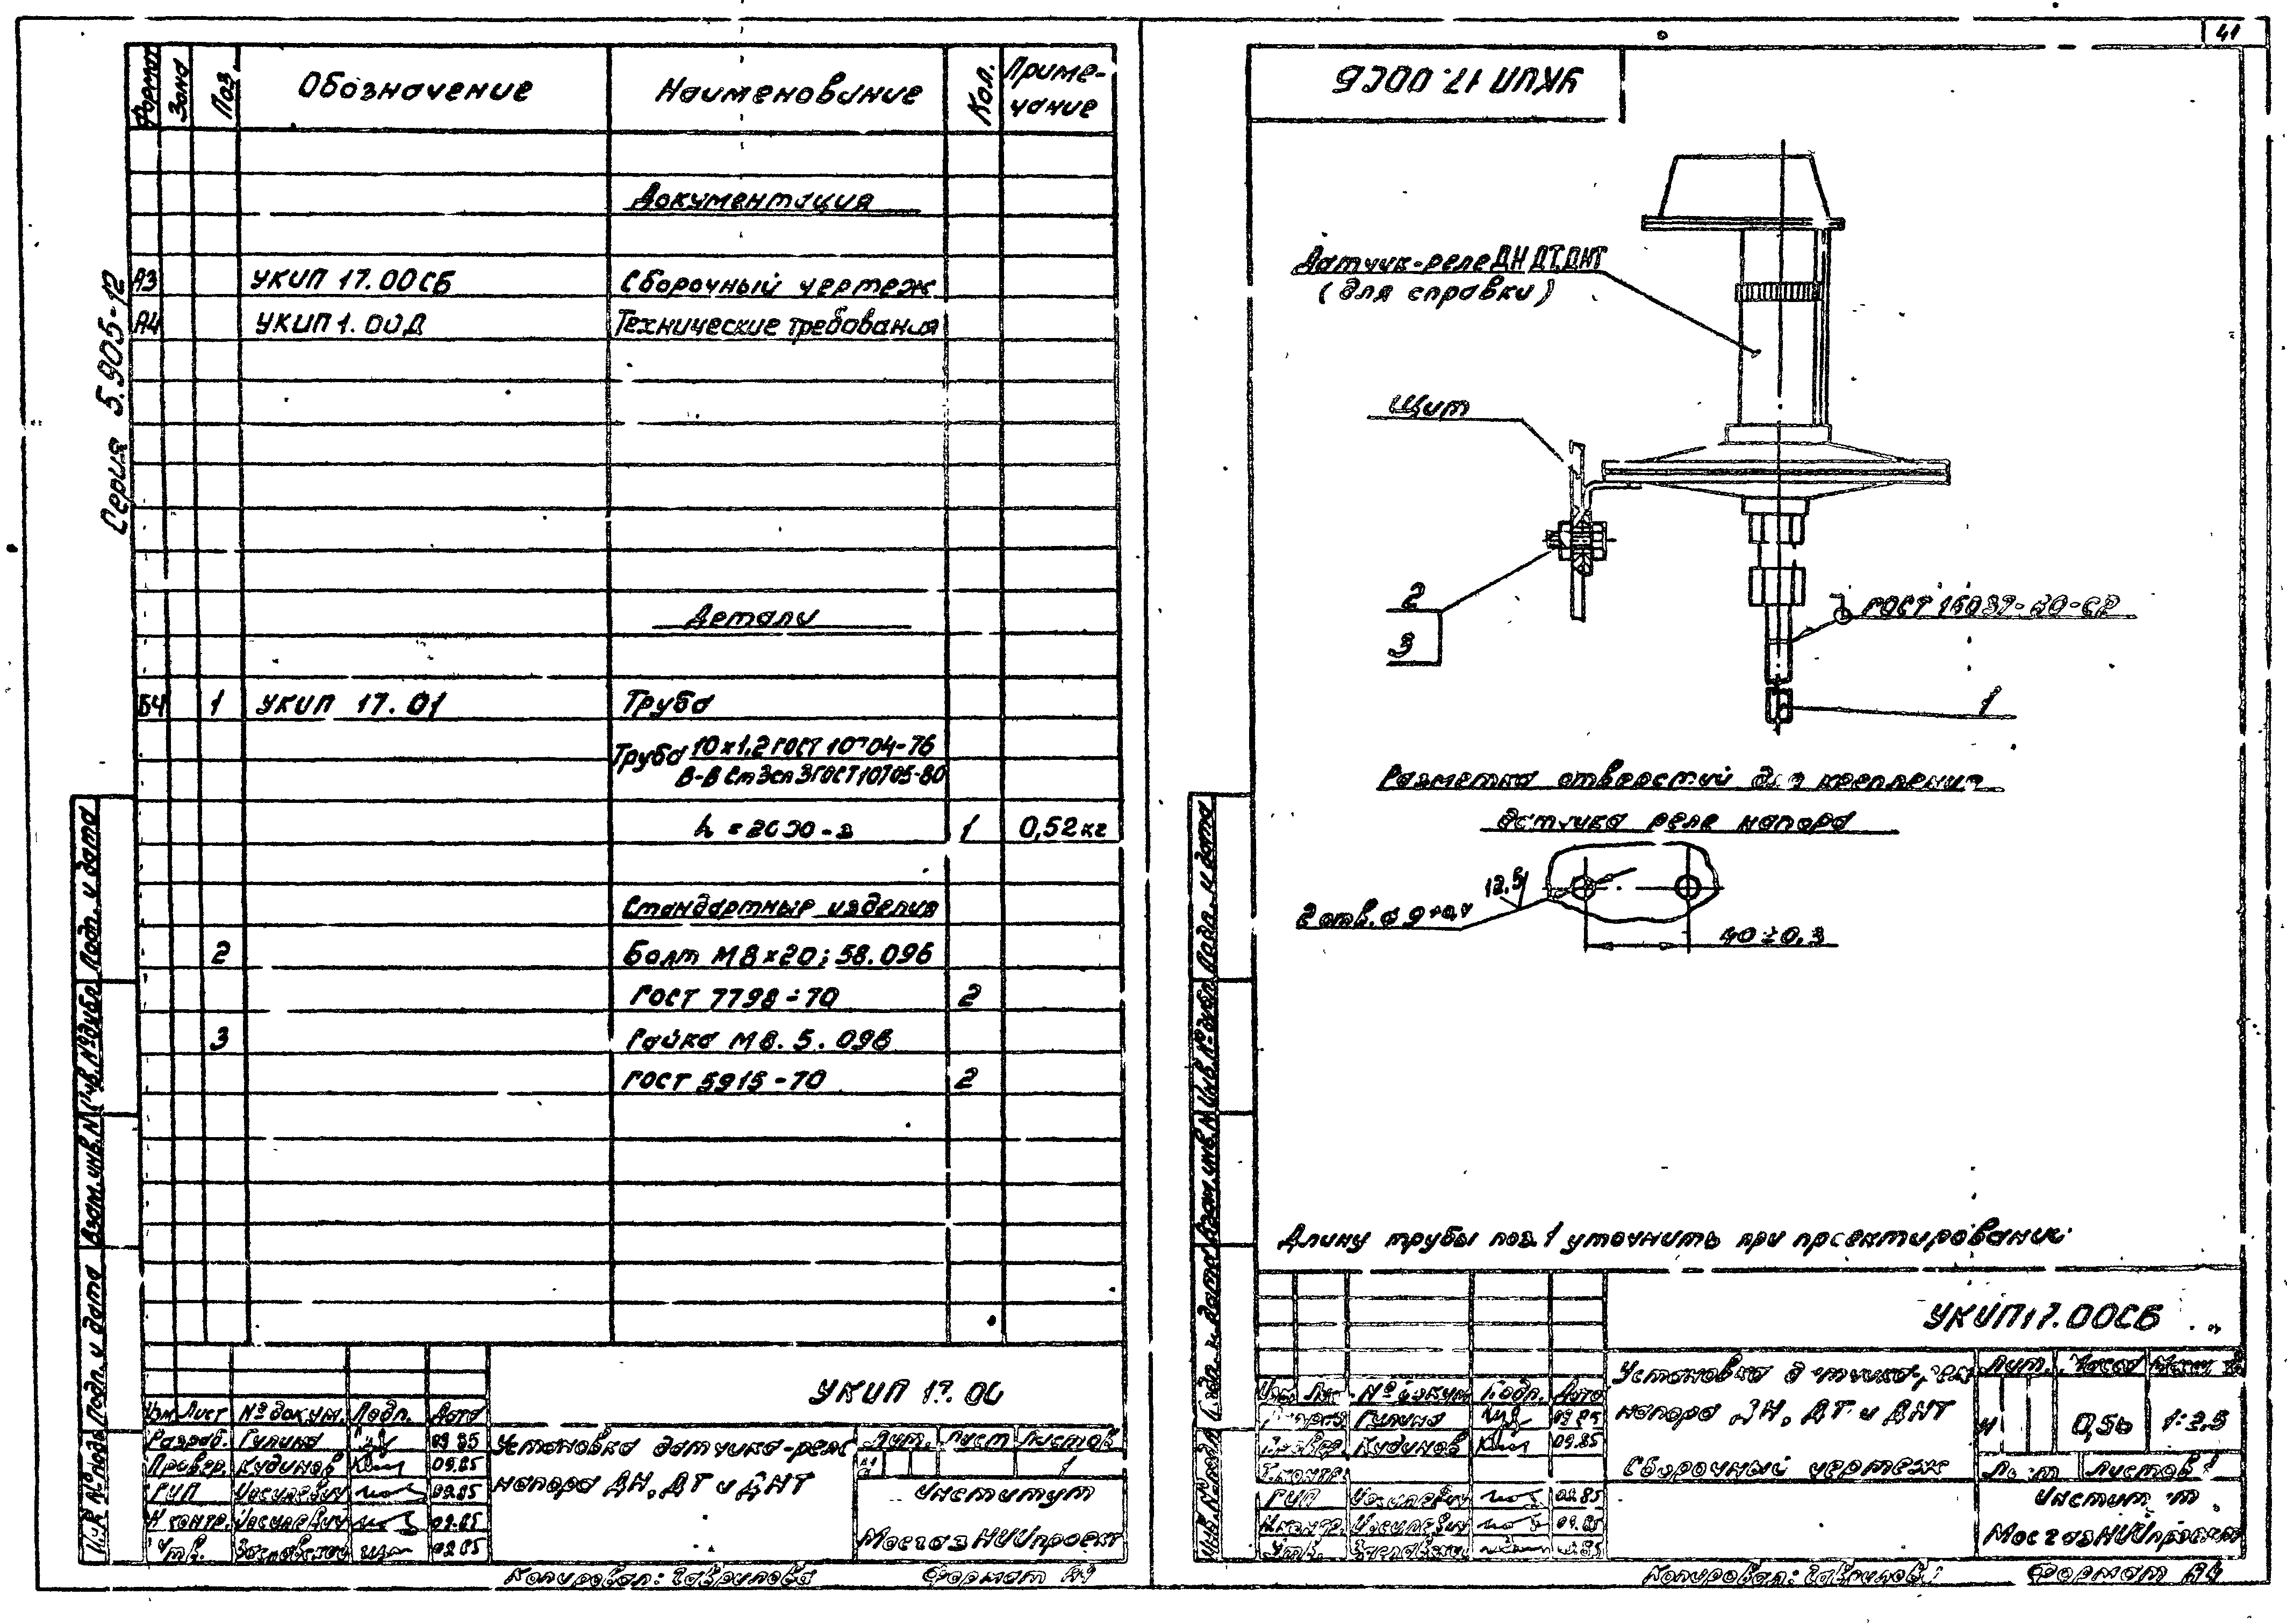 41
Серия 5.905-12
Формат Зона Поз. Обозначение Наименование Кол. Приме-
чание
Документация
А3 УКИП 17.00СБ Сборочный чертеж
А4 УКИП 1.00Д Технические требования
Детали
БЧ 1 УКИП 17.01 Труба
Труба 10х1,2 ГОСТ 10704-76
В-В Ст3сп3ГОСТ10705-80
1 0,52кг
Стандартные изделия
2 Болт М8х20;58.096
ГОСТ 7798-70 2
3 Гайка М8.5.096
ГОСТ 5915-70 2
Взам.инв.№ Инв.№дубл. Подп. и дата
Инв.№подл. Подп. и дата
УКИП 17.00
Изм Лист №докум. Подп. Дата
Разраб. Гулина 09.85
Провер. Кудинов 09.85
ГИП 09.85
Н контр. 09.85
Утв. 09.85
Установка датчика-реле
напора ДН, ДТ и ДНТ
Лит. Лист Листов
1
Институт
МосгазНИИпроект
Копировал: Гаврилова Формат А4
УКИП 17.00СБ
Датчик-реле ДН ДТ,ДНТ
(для справки)
Щит
2
3
ГОСТ 16037-80-С2
1
Разметка отверстий для крепления
датчика реле напора
12,5
2 отв. ⌀ 9
40±0,3
Длину трубы поз.1 уточнить при проектировании
Инв.№подл. Подп. и дата Взам.инв.№ Инв.№дубл. Подп. и дата
УКИП17.00СБ
Изм Лис №докум Подп. Дата
Разраб Гулина 09.85
Провер. Кудинов 09.85
Т.контр.
ГИП 09.85
Н.контр. 09.85
Утв.
Установка датчика-реле
напора ДН, ДТ и ДНТ
Сборочный чертеж
Лит. Масса Масштаб
И 1:2,5
Лист Листов 1
Институт
МосгазНИИпроект
Копировал: Гаврилова Формат А4